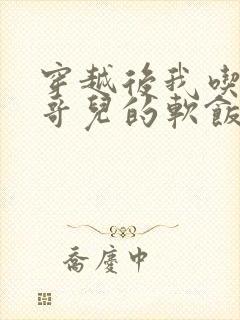 穿越後我喫
哥兒的軟飯
喬慶中